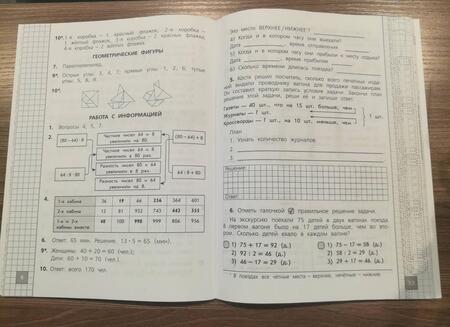 10*. 1-я коробка – 1 красный флажок, 2-я коробка –
1 жёлтый флажок, 3-я коробка – 2 красных флажка,
4-я коробка – 2 жёлтых флажка.
ГЕОМЕТРИЧЕСКИЕ ФИГУРЫ
7. Параллелепипед.
9*. Острые углы: 3, 4, 7; прямые углы: 1, 2, 6; тупые
углы: 5, 8, 9.
10*.
РАБОТА С ИНФОРМАЦИЕЙ
1. Вопросы 4, 5, 7.
2.
(80 – 64) : 8
Частное чисел 64 и 8
увеличили на 80.
(80 – 64) · 8
Частное чисел 64 и 8
увеличили в 80 раз.
Разность чисел 80 и 64
увеличили в 8 раз.
64 : 8 · 80
Разность чисел 80 и 64
64 : 8 + 80
4.
1-я кабина 36 19 66 256 364 601
2-я кабина 12 81 932 743 442 355
1-я и 2-я кабины вместе 48 100 998 999 806 956
6. Ответ: 65 мин. Решение: 13 · 5 = 65 (мин).
9*. Женщины: 40 + 20 = 60 (чел.);
Дети: 60 + 10 = 70 (чел.).
10. Ответ: всего 170 чел.
Это место ВЕРХНЕЕ/НИЖНЕЕ*?
а) Когда и в котором часу они выехали?
Дата время отправления
б) Когда и в котором часу они прибыли к месту отдыха?
Дата время прибытия
в) Сколько времени длилась поездка?
5. Костя решил посчитать, сколько всего печатных изда-
ний выдали проводнику вагона для продажи пассажирам.
Он составил краткую запись условия задачи. Закончи план
решения этой задачи, реши её и запиши ответ.
Газеты – 40 шт., что на 15 шт. больше, чем
Журналы – ? шт.
Кроссворды – ? шт., на 10 шт. меньше, чем
? шт.
План
1. Узнать количество журналов.
2.
3.
Решение
Ответ:
6. Отметь галочкой правильное решение задачи.
На экскурсию поехали 75 детей в двух вагонах поезда.
В первом вагоне было на 17 детей больше, чем во вто-
ром. Сколько детей ехало в каждом вагоне?
1) 75 + 17 = 92 (д.)
2) 92 : 2 = 46 (д.)
3) 46 – 17 = 29 (д.)
1) 75 – 17 = 58 (д.)
2) 58 : 2 = 29 (д.)
3) 29 + 17 = 46 (д.)
* В поездах все чётные места – верхние, нечётные – нижние.